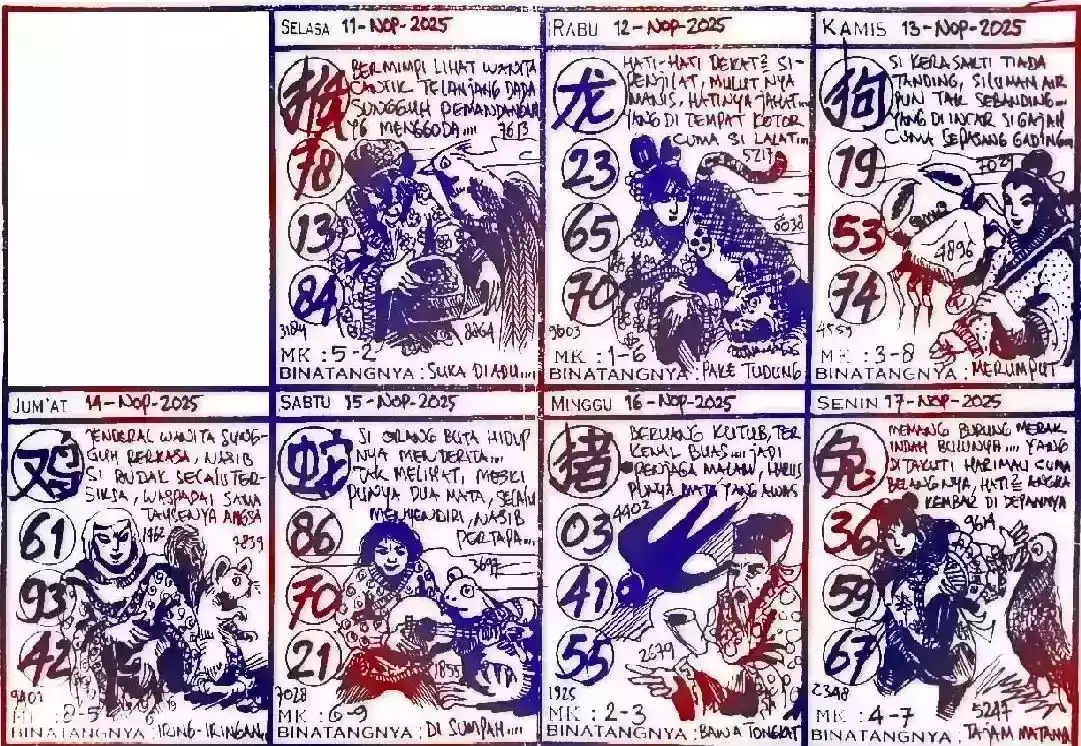 SELASA 11-NOP-2025
猴
BERMIMPI LIHAT WANITA
CANTIK TELANJANG DADA
SUNGGUH PEMANDANGAN
YG MENGGODA.... 7613
78
13
84
3184 8864
MK : 5-2
BINATANGNYA : SUKA DIADU....
RABU 12-NOP-2025
龙
HATI-HATI DEKAT² SI-
PENJILAT, MULUT NYA
MANIS, HATINYA JAHAT...
YANG DI TEMPAT KOTOR
CUMA SI LALAT...
5213
23
65
6038
70
9603
MK : 1-6
BINATANGNYA : PAKE TUDUNG
KAMIS 13-NOP-2025
狗
SI KERA SAKTI TIADA
TANDING, SILUMAN AIR
PUN TAK SEBANDING...
YANG DI INCAR SI GAJAH
CUMA SEPASANG GADING...
7029
19
53
4896
74
4559
MK : 3-8
BINATANGNYA : MERUMPUT
JUM'AT 14-NOP-2025
鸡
JENDERAL WANITA SUNG-
GUH PERKASA, NASIB
SI BUDAK SECALU TER-
SIKSA, WASPADAI SAMA
ANGSA
1462 7839
61
93
42
9407
BINATANGNYA : IRING-IRINGAN
SABTU 15-NOP-2025
蛇
SI ORANG BUTA HIDUP
NYA MENDERITA...
TAK MELIHAT, MESKI
PUNYA DUA MATA, SECALU
MENYENDIRI, NASIB
PERTAPA...
86
3697
70
21
1855
7028
MK : 6-9
BINATANGNYA : DI SUMPAH....
MINGGU 16-NOP-2025
猪
BERUANG KUTUB, TER
KENAL BUAS.... JADI
PENJAGA MALAM, HARUS
PUNYA MATA YANG AWAS
4402
03
41
55
2679
1925
MK : 2-3
BINATANGNYA : BAWA TONGKAT
SENIN 17-NOP-2025
兔
MEMANG BURUNG MERAK
INDAH BULUNYA.... YANG
DITAKUTI HARIMAU CUMA
BELANGNYA, HATI² ANGKA
KEMBAR DI DEPANNYA
9614
36
59
67
2348 5247
MK : 4-7
BINATANGNYA : TAJAM MATANYA